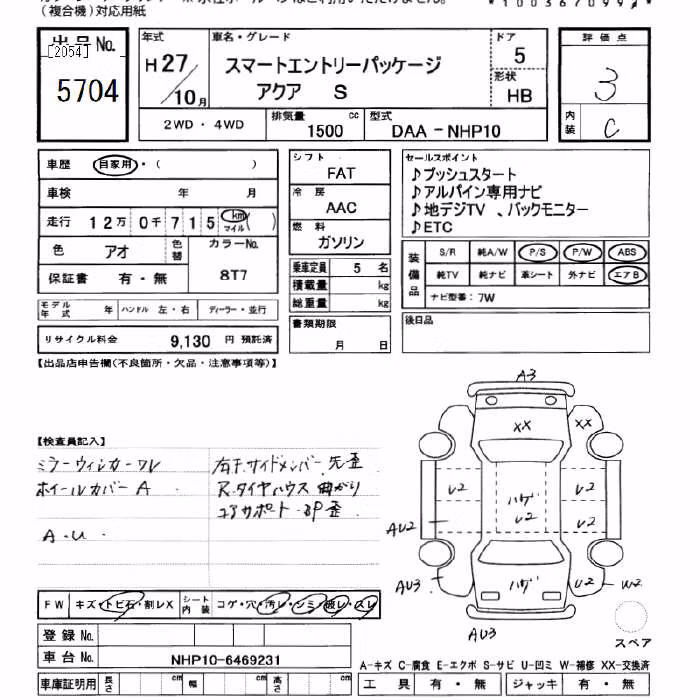 (複合機)対応用紙
*100367099*
出品No.
[2054]
5704
年式
H27/10月
車名・グレード
スマートエントリーパッケージ
アクア S
ドア
5
形状
HB
評価点
3
内装
C
2WD・4WD
排気量
1500 cc
型式
DAA-NHP10
車歴 自家用・( )
車検 年 月
走行 12万0千715 km マイル ( )
色 アオ 色替 カラーNo. 8T7
保証書 有・無
モデル年式 年 ハンドル 左・右 ディーラー・並行
リサイクル料金 9,130 円 預託済
シフト
FAT
冷房
AAC
燃料
ガソリン
乗車定員 5 名
積載量 kg
総重量 kg
書類期限
月 日
セールスポイント
♪プッシュスタート
♪アルパイン専用ナビ
♪地デジTV 、バックモニター
♪ETC
装備品
S/R 純A/W P/S P/W ABS
純TV 純ナビ 革シート 外ナビ エアB
ナビ型番:7W
後日品
【出品店申告欄(不良箇所・欠品・注意事項等)】
【検査員記入】
ミラーウィンカーワレ
ホイールカバー A
A.U
右F.サイドメンバー先歪
R.タイヤハウス曲がり
コアサポート・BP歪
A3
XX
XX
U2
ハゲ
U2
U2
U2
AU2
AU3
ハゲ
U2
W2
AU3
スペア
FW キズ・トビ石・割レX シート内装 コゲ・穴・汚レ・シミ・破レ・スレ
登録No.
車台No. NHP10-6469231
車庫証明用 長さ cm 幅 cm 高さ cm
A-キズ C-腐食 E-エクボ S-サビ U-凹ミ W-補修 XX-交換済
工具 有・無 ジャッキ 有・無